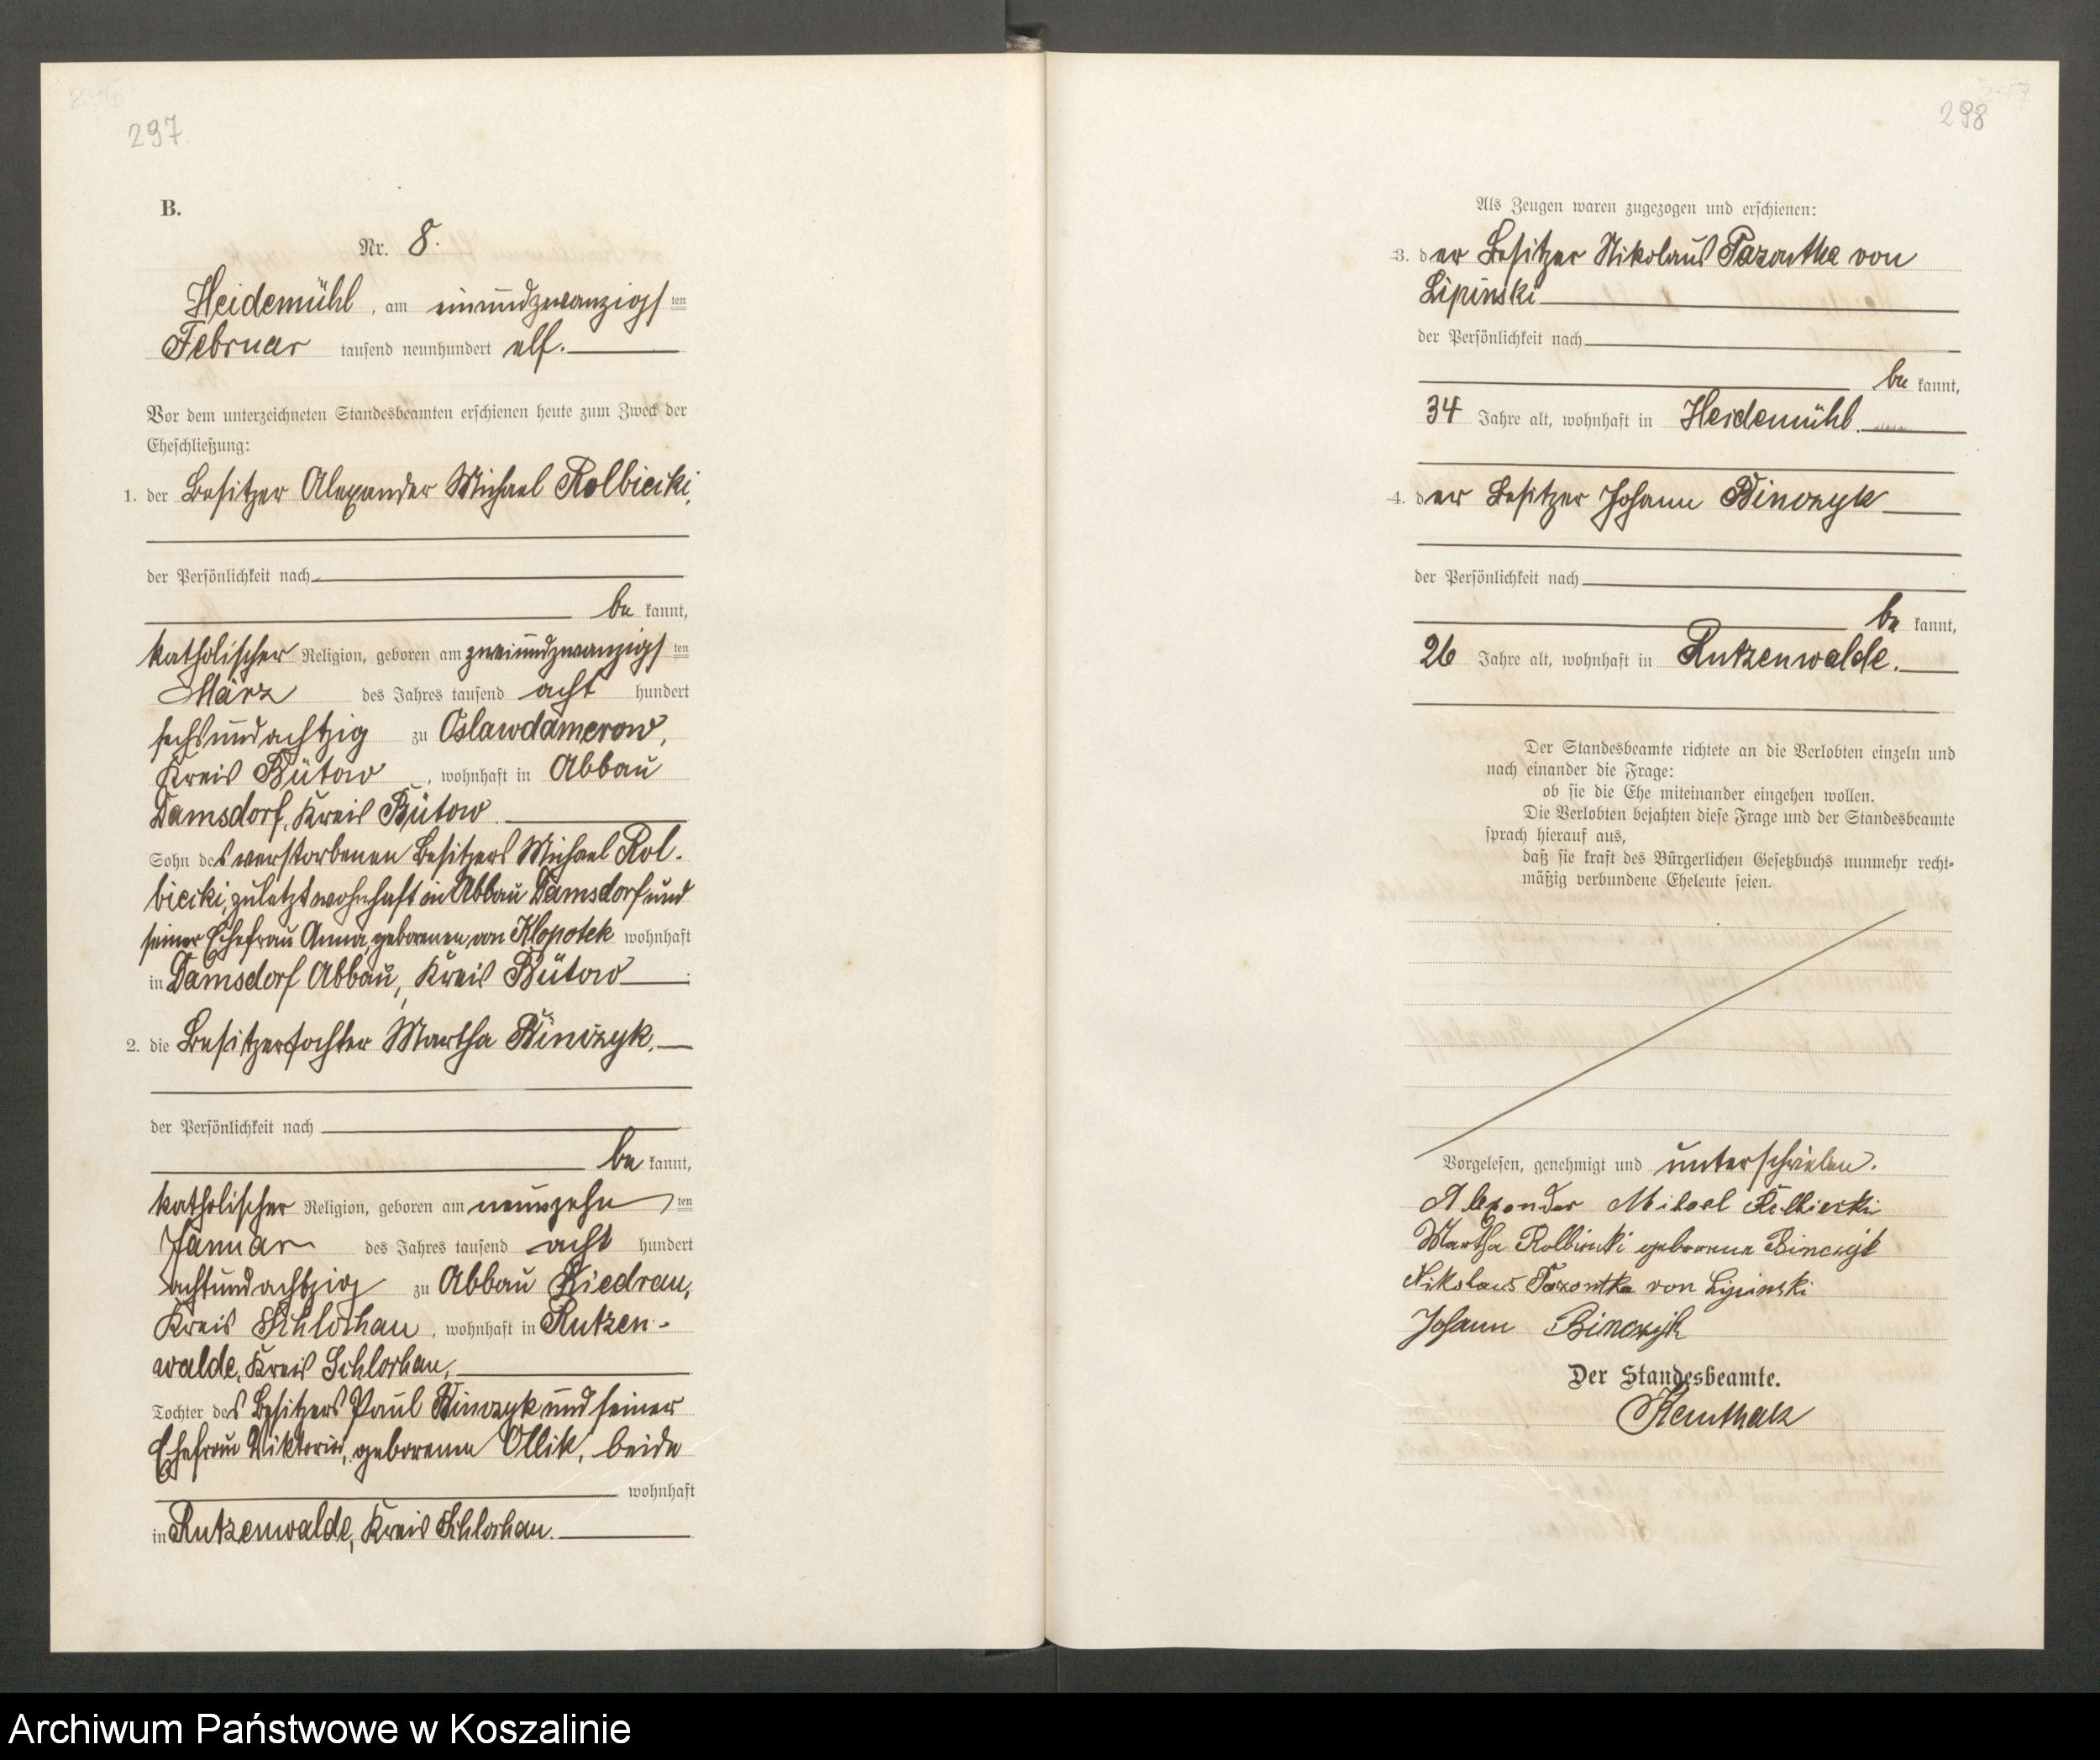 297
B.
Nr. 8.
Heidemühl, am einundzwanzigsten
Februar tausend neunhundert elf.
Vor dem unterzeichneten Standesbeamten erschienen heute zum Zweck der
Eheschließung:
1. der Besitzer Alexander Michael Rolbiecki,
der Persönlichkeit nach
be kannt,
katholischer Religion, geboren am zweiundzwanzigsten
März des Jahres tausend acht hundert
sechsundachtzig zu Oslawdamerow,
Kreis Bütow, wohnhaft in Abbau
Damsdorf, Kreis Bütow
Sohn des verstorbenen Besitzers Michael Rol-
biecki, zuletzt wohnhaft in Abbau Damsdorf und
seiner Ehefrau Anna, geborenen von Klopotek wohnhaft
in Damsdorf Abbau, Kreis Bütow
2. die Besitzertochter Martha Binczyk,
der Persönlichkeit nach
be kannt,
katholischer Religion, geboren am neunzehnten
Januar des Jahres tausend acht hundert
achtundachtzig zu Abbau Kiedrau,
Kreis Schlochau, wohnhaft in Rutzen-
walde, Kreis Schlochau,
Tochter des Besitzers Paul Binczyk und seiner
Ehefrau Viktoria, geborenen Ollik, beide
wohnhaft
in Rutzenwalde, Kreis Schlochau.
298
Als Zeugen waren zugezogen und erschienen:
3. der Besitzer Nikolaus Pazontka von
Lipinski
der Persönlichkeit nach
be kannt,
34 Jahre alt, wohnhaft in Heidemühl.
4. der Besitzer Johann Binczyk
der Persönlichkeit nach
be kannt,
26 Jahre alt, wohnhaft in Rutzenwalde.
Der Standesbeamte richtete an die Verlobten einzeln und
nach einander die Frage:
ob sie die Ehe miteinander eingehen wollen.
Die Verlobten bejahten diese Frage und der Standesbeamte
sprach hierauf aus,
daß sie kraft des Bürgerlichen Gesetzbuchs nunmehr recht-
mäßig verbundene Eheleute seien.
Vorgelesen, genehmigt und unterschrieben.
Alexander Michael Rolbiecki
Martha Rolbiecki geborene Binczyk
Nikolaus Pazontka von Lipinski
Johann Binczyk
Der Standesbeamte.
Archiwum Państwowe w Koszalinie